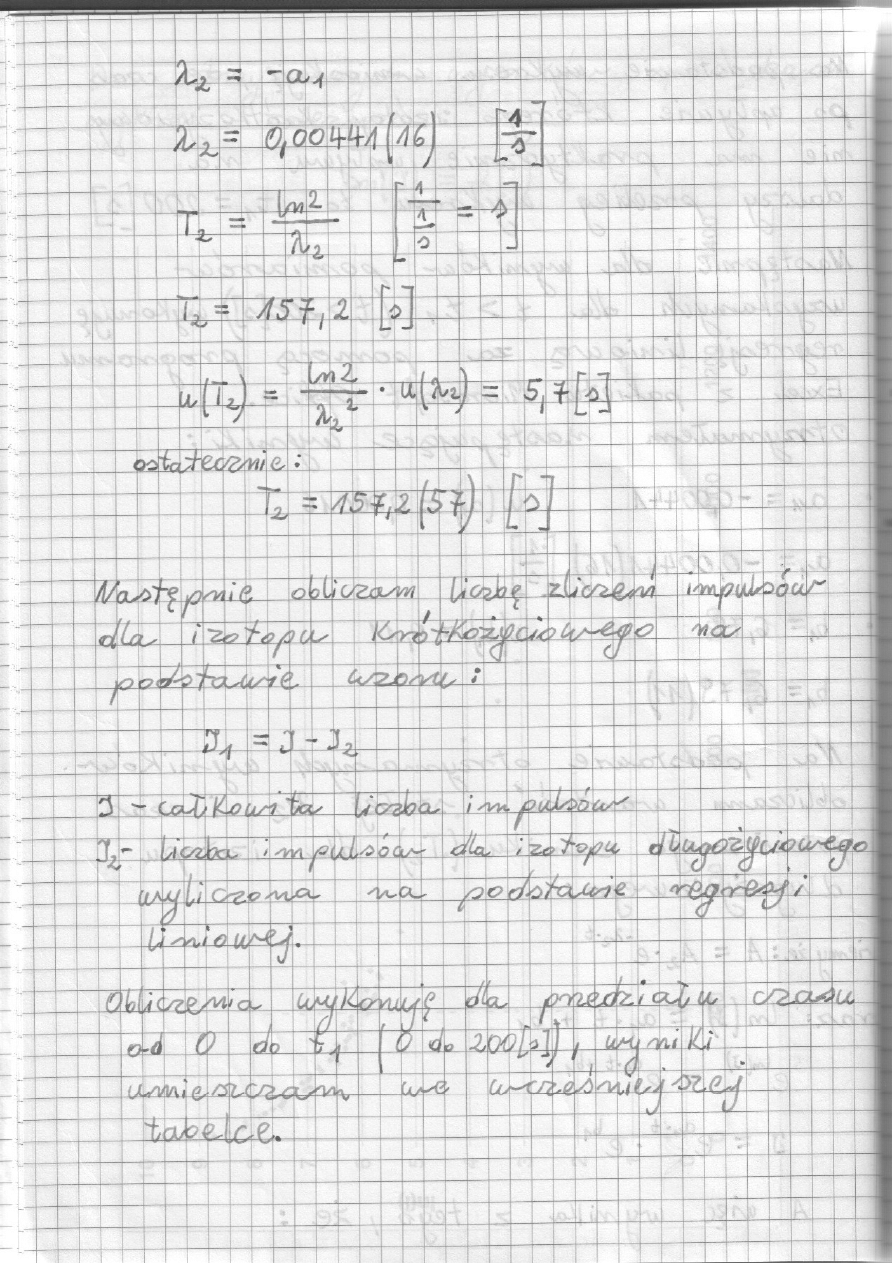 λ₂ = -a₁
λ₂ = 0,00441(16) [1/s]
T₂ = ln2/λ₂ [1/(1/s) = s]
T₂ = 157,2 [s]
u(T₂) = ln2/λ₂² · u(λ₂) = 5,7[s]
ostatecznie:
T₂ = 157,2(57) [s]
Następnie obliczam liczbę zliczeń impulsów
dla izotopu krótkożyciowego na
podstawie wzoru:
I₁ = I - I₂
I - całkowita liczba impulsów
I₂- liczba impulsów dla izotopu długożyciowego
wyliczona na podstawie regresji
liniowej.
Obliczenia wykonuję dla przedziału czasu
od 0 do t₁ (0 do 200[s]), wyniki
umieszczam we wcześniejszej
tabelce.